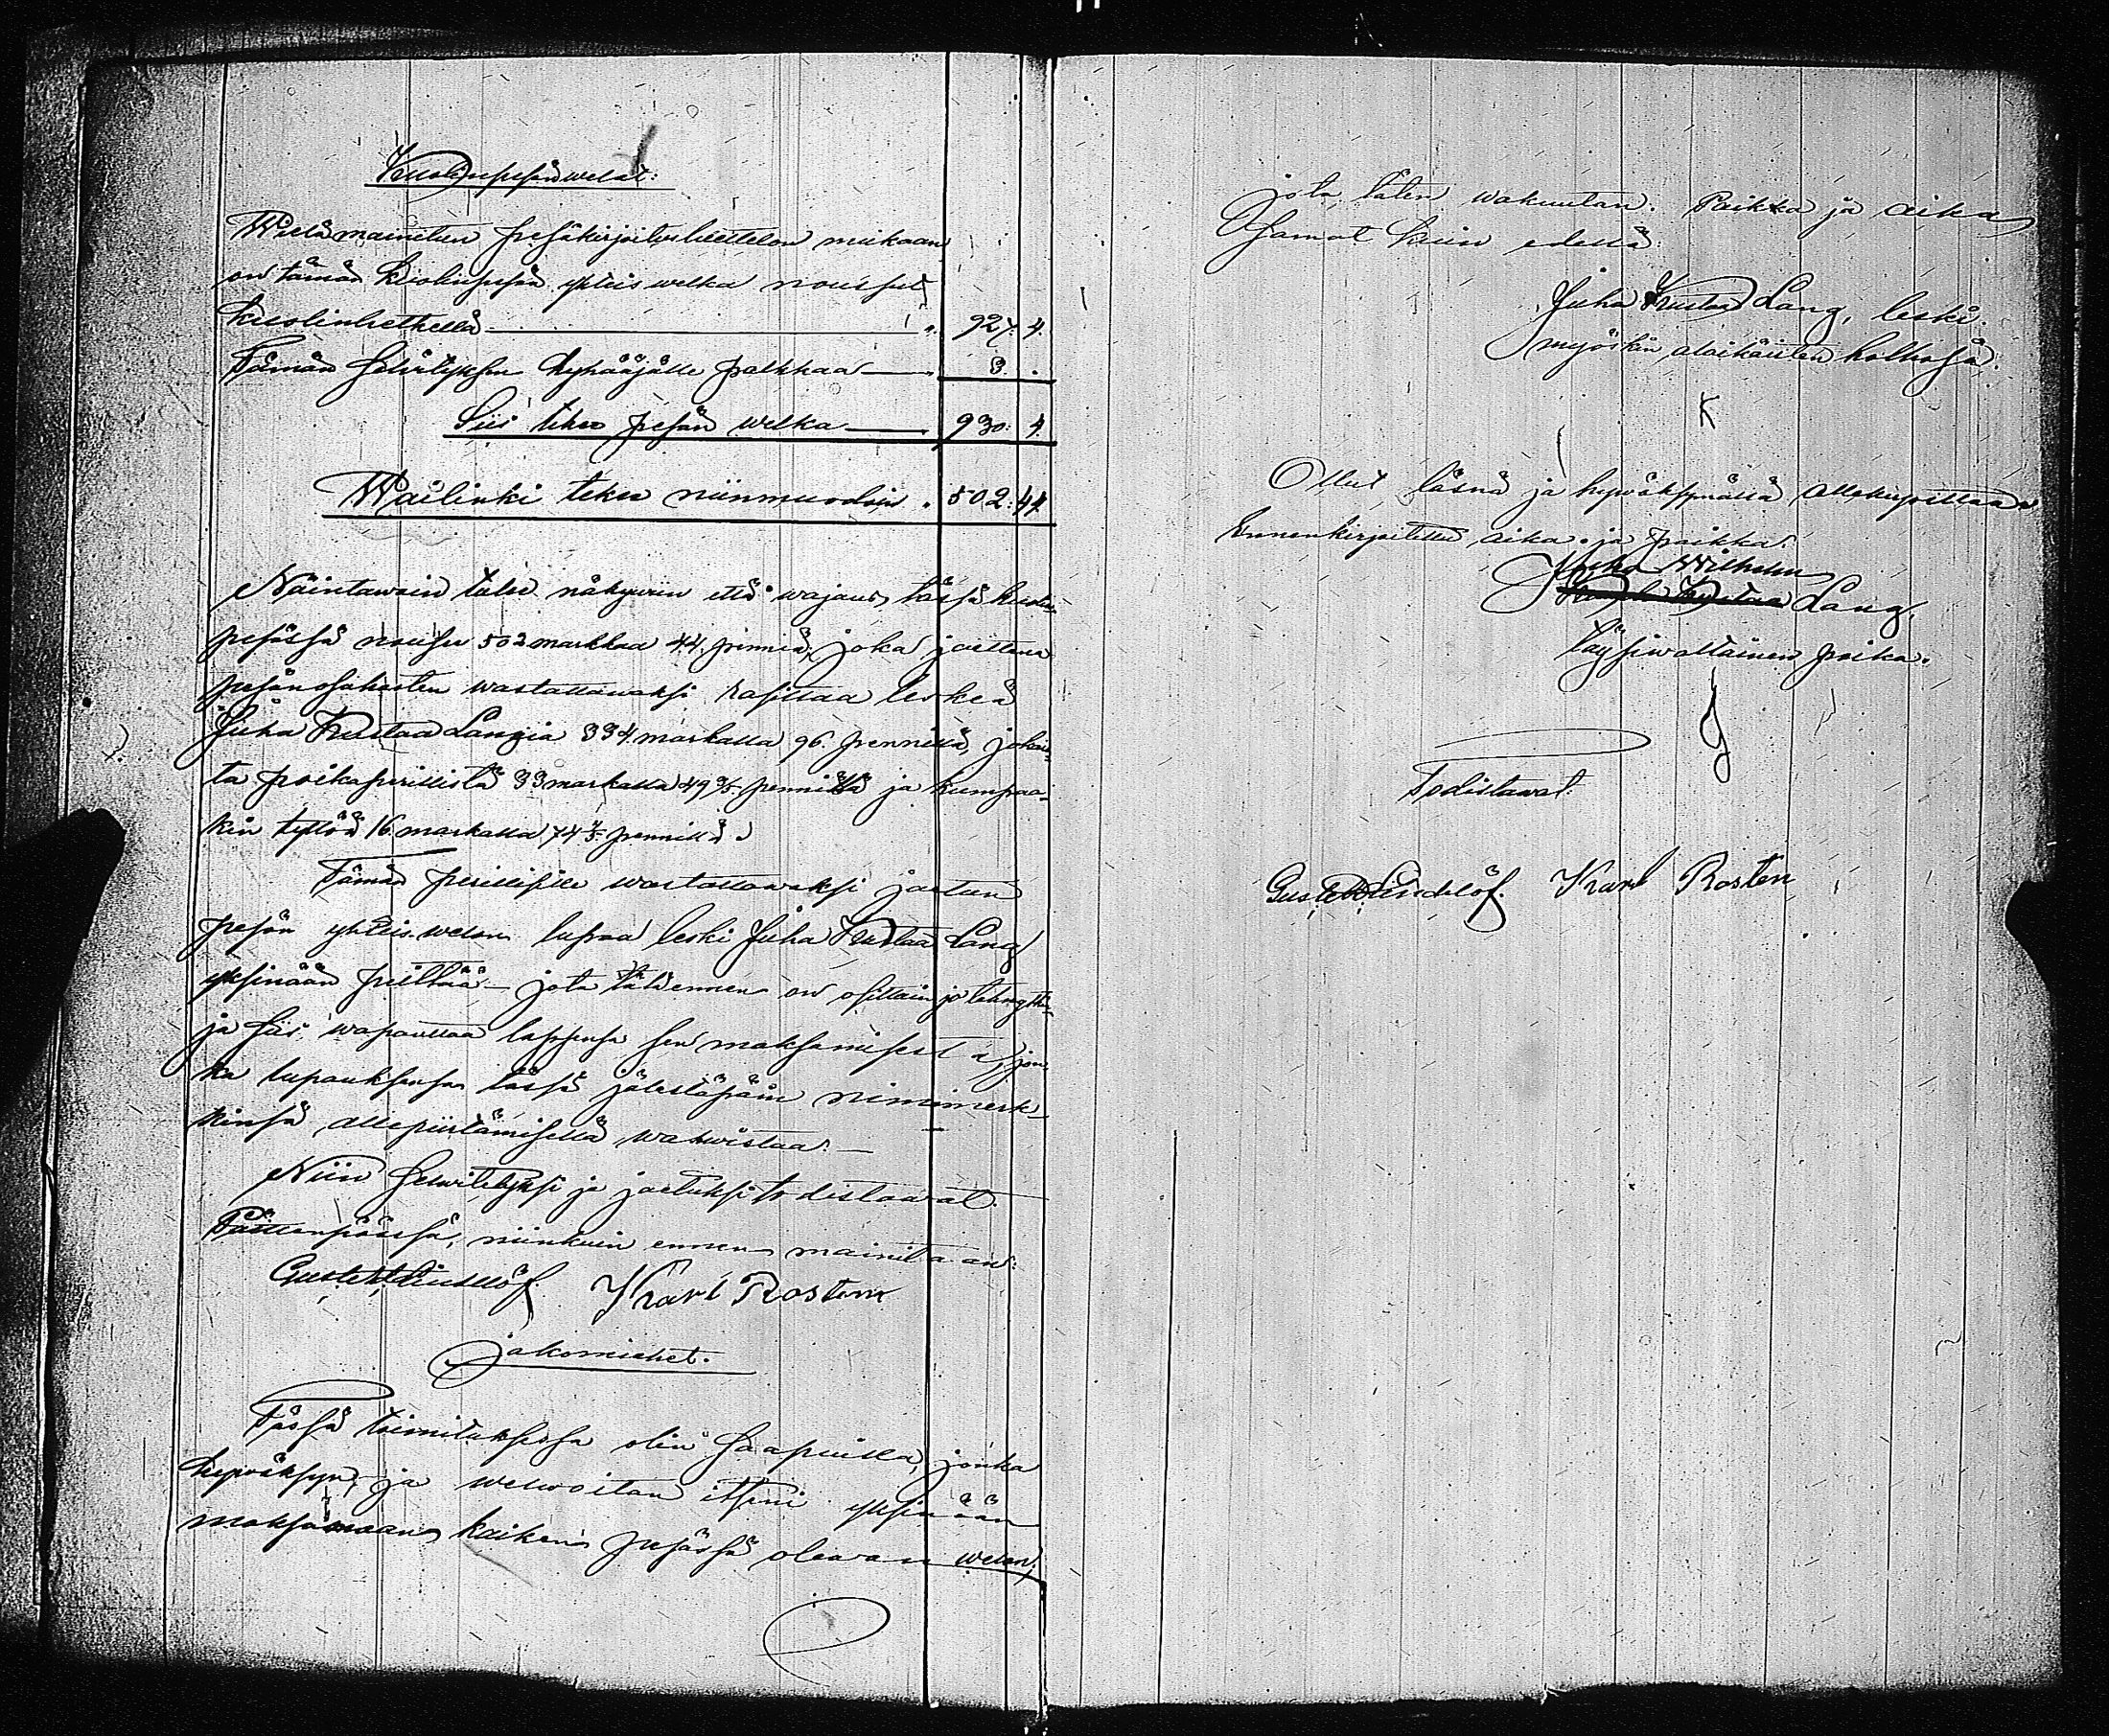 Kuolinpesän welat:
Wielä mainitun pesäkirjoitusluettelon mukaan
on tämän kuolinpesän yhteis welka noussut
kuolinhetkellä " 927. 4.
Tämän selwityksen kyhääjälle palkkaa " 3. .
Siis tekee pesän welka " 930: 4.
Wailinki tekee niinmuodoin " 502: 44.
Näintawoin tulee näkywiin että wajaus tässä kuolin-
pesässä nousee 502 markkaa 44. penniä, joka jaettuna
pesänosakasten wastattawaksi rasittaa leskeä
Juha Kustaa Langia 334 markalla 96. pennillä, jokais-
ta poikaperillistä 33 markalla 49 3/5. pennillä ja kumpaa-
kin tyttöä 16 markalla 74 4/5. pennillä.
Tämän perillisille wastattawaksi jaetun
pesän yhteis welan lupaa leski Juha Kustaa Lang
yksinään pitää – jota tätä ennen on osittain jo tehnytkin –
ja siis wapauttaa lapsensa sen maksamisesta, jon-
ka lupauksensa tässä jälestäpäin nimimerk-
kinsä allepiirtämisellä wahwistaa. –
Niin selwitetyksi ja jaetuksi todistawat
niinkuin ennen mainitaan:
Gustaf Lindlöf. Karl Rosten
Jakomiehet.
Tässä toimituksessa olin saapuilla, jonka
hywäksyn, ja welwoitan itseni yksinään
maksamaan kaiken pesässä olewan welan,
jota täten wakuutan. Paikka ja aika
Samat kuin edellä:
Juha Kustaa Lang, leski.
myöskin alaikäisten holhoja.
K
Ollut läsnä ja hywäksymällä allekirjoittaa
Ennenkirjoitettu aika ja paikka.
Juha Wilhelm
Kustaa Lang,
täysiwaltainen poika.
J
Todistawat:
Gustaf Lindlöf. Karl Rosten